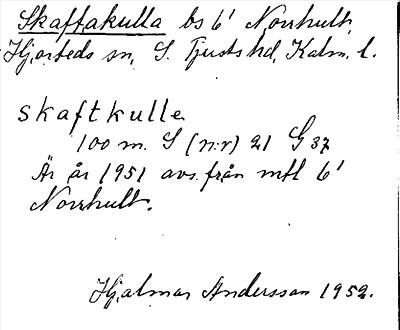 Skaftakulla bs 6¹ Norrhult,
Hjorteds sn, S. Tjusts hd, Kalm. l.
skaftkulle
100 m. S (n:r) 21 G 37
Är år 1951 avs. från mtl 6¹
Norrhult.
Hjalmar Andersson 1952.